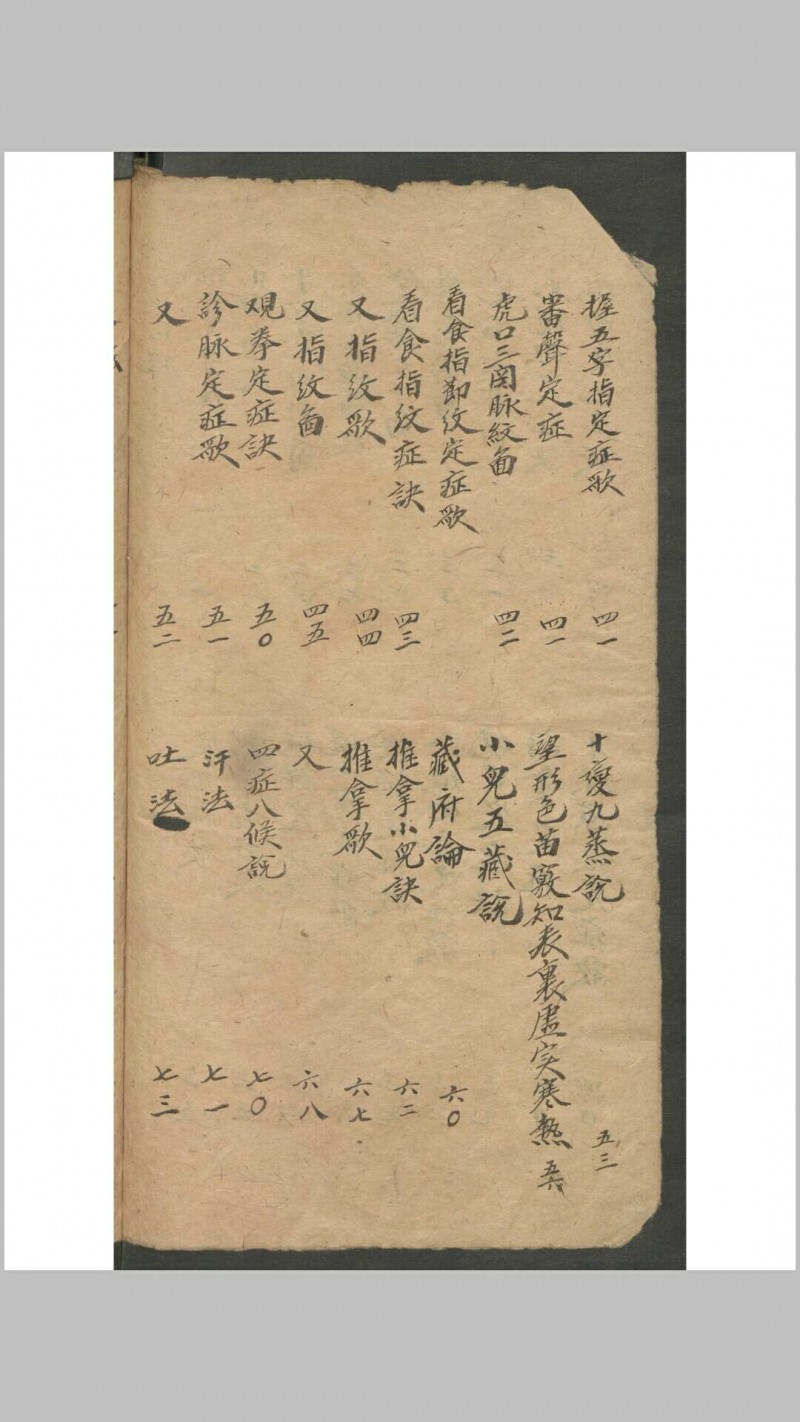 握五字指定症歌 四一
審聲定症 四一
虎口三関脉紋啚 四二
看食指節紋定症歌
看食指紋症訣 四三
又指紋歌 四四
又指紋啚 四五
观拳定症訣 五〇
診脉定症歌 五一
又 五二
十變九蒸說 五三
望形色苗竅知表裏虛实寒熱 五六
小兒五藏說
藏府論 六〇
推拿小兒訣 六二
推拿歌 六七
又 六八
四症八候說 七〇
汗法 七一
吐法 七三